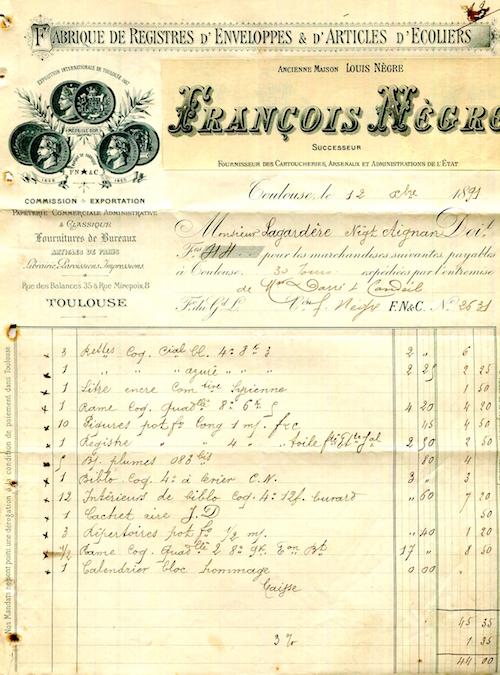 Fabrique de Registres d'Enveloppes & d'Articles d'Ecoliers
Ancienne Maison Louis Nègre
François Nègre
Successeur
Fournisseur des Cartoucheries, Arsenaux et Administrations de l'Etat
Exposition Internationale de Toulouse 1887
Médaille d'Or
F N & C
Commission & Exportation
Papeterie Commerciale Administrative
& Classique
Fournitures de Bureaux
Articles de Paris
Librairie, Paroissiens, Impressions
Rue des Balances 35 & Rue Mirepoix, 8
Toulouse
Toulouse, le 12 1891
Monsieur Lagardère Négt Aignan Doit
pour les marchandises suivantes, payables
à Toulouse. 30 jours expédiées par l'entremise
de Candeil
F. N & C. No 2631
3 Rettes Coq. Cial Bl. 4o 2 " 6
1 " " " azuré " " 2 25 2 25
1 Litre encre Comtive 1 50
1 Rame Coq. Quadlé 8o 4 20 4 20
10 pot fo long 1 m/. 45 4 50
1 Registre " " 4 " toile 2 50 2 50
Bt plumes 083 bis 80 4
1 Biblo Coq. 4o à levier C. N. 3 " 3
12 Intérieurs de biblo Coq. 4o 12f. buvard " 60 7 20
1 Cachet cire J. D 50
3 Répertoires pot fo 1/2 m/. " 40 1 20
1/2 Rame Coq. Quadlé 2 8o 9k. 17 " 8 50
1 Calendrier bloc hommage 0 00
Caisse
45 35
3 % 1 35
44 00
Nos Mandats ne sont point une dérogation à la condition de paiement dans Toulouse